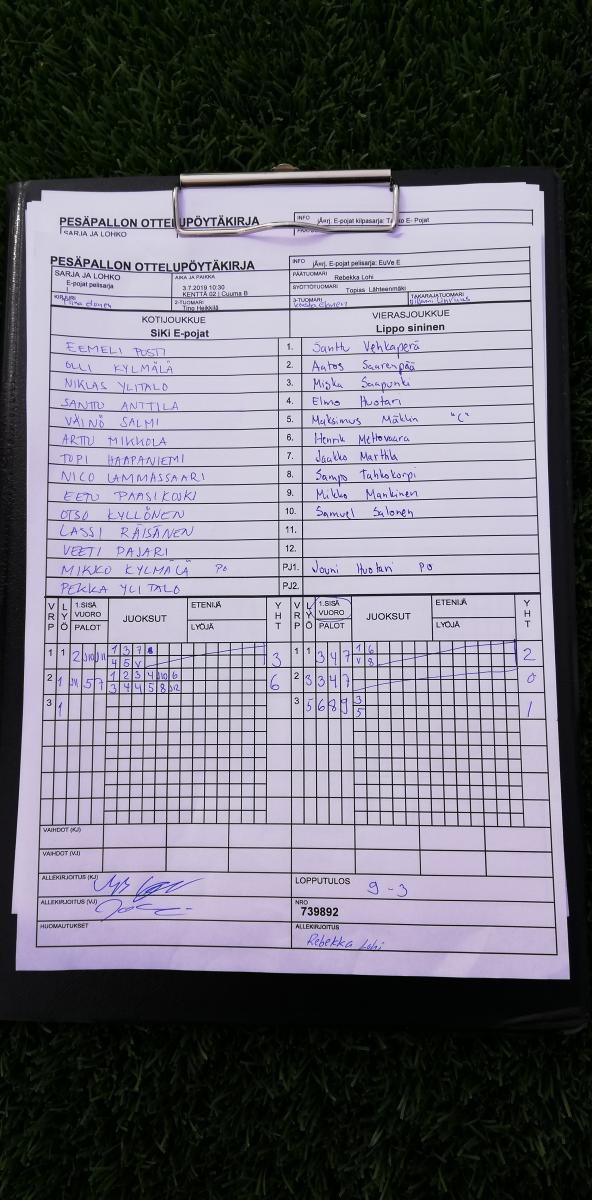 PESÄPALLON OTTELUPÖYTÄKIRJA
INFO jÄrrj. E-pojat kilpasarja: E- Pojat
SARJA JA LOHKO
PESÄPALLON OTTELUPÖYTÄKIRJA
INFO jÄrrj. E-pojat pelisarja: EuVe E
SARJA JA LOHKO
E-pojat pelisarja
I
AIKA JA PAIKKA
3.7.2019 10:30
KENTTÄ 02 | Cuuma B
PÄÄTUOMARI
Rebekka Lohi
SYÖTTÖTUOMARI
Topias Lähteenmäki
KIRJURI
2-TUOMARI
Tino Heikkilä
3-TUOMARI
TAKARAJATUOMARI
KOTIJOUKKUE
SiKi E-pojat
VIERASJOUKKUE
Lippo sininen
EEMELI POSTI 1. Santtu Vehkaperä
OLLI KYLMÄLÄ 2. Aatos Saarenpää
NIKLAS YLITALO 3. Miska Saapunki
SANTTU ANTTILA 4. Elmo Huotari
VÄINÖ SALMI 5. Maksimus Mäklin "C"
ARTTU MIKKOLA 6. Henrik Mettovaara
TOPI HAAPANIEMI 7. Jaakko Marttila
NICO LAMMASSAARI 8. Sampo Tahkokorpi
EETU PAASIKOSKI 9. Mikko Mankinen
OTSO KYLLÖNEN 10. Samuel Salonen
LASSI RÄISÄNEN 11.
VEETI PAJARI 12.
MIKKO KYLMÄLÄ PO PJ1. Jouni Huotari PO
PEKKA YLITALO PJ2.
VRP LYÖ 1.SISÄ VUORO PALOT JUOKSUT ETENIJÄ LYÖJÄ YHT VRP LYÖ 1.SISÄ VUORO PALOT JUOKSUT ETENIJÄ LYÖJÄ YHT
1 1 2 J10 J11 1 3 7 3 1 1 3 4 7 1 6 2
4 5 V V 8
2 1 J11 5 7 1 2 3 4 J10 6 6 2 3 3 4 7 0
3 4 4 5 8 J12
3 1 3 5 6 8 9 3 1
5
VAIHDOT (KJ)
VAIHDOT (VJ)
ALLEKIRJOITUS (KJ)
LOPPUTULOS 9-3
ALLEKIRJOITUS (VJ)
NRO
739892
HUOMAUTUKSET
ALLEKIRJOITUS
Rebekka Lohi